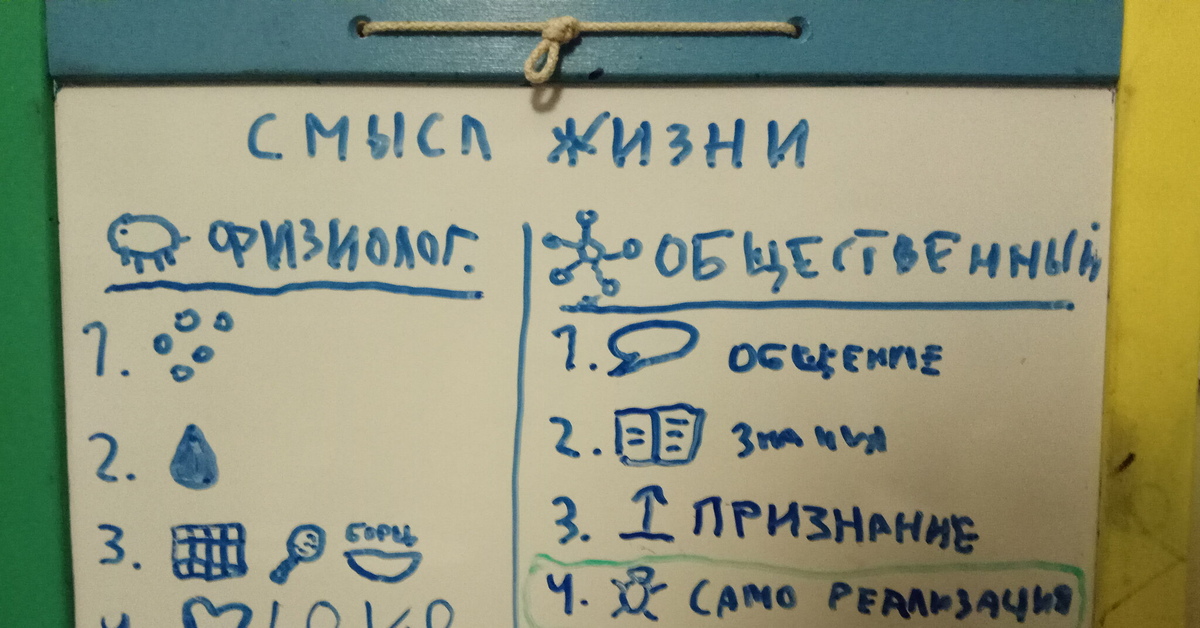 СМЫСЛ ЖИЗНИ
ФИЗИОЛОГ.
1.
2.
3. БОРЩ
4.
ОБЩЕСТВЕННЫЙ
1. ОБЩЕНИЕ
2. ЗНАНИЯ
3. ПРИЗНАНИЕ
4. САМО РЕАЛИЗАЦИЯ